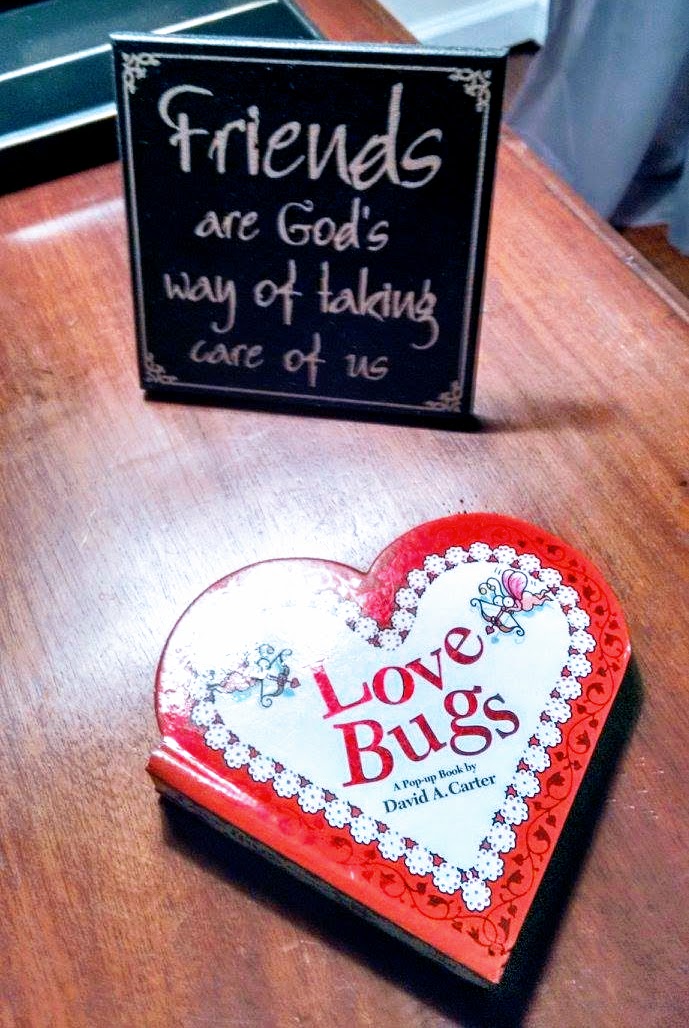 Friends
are God's
way of taking
care of us
Love
Bugs
A Pop-up Book by
David A. Carter